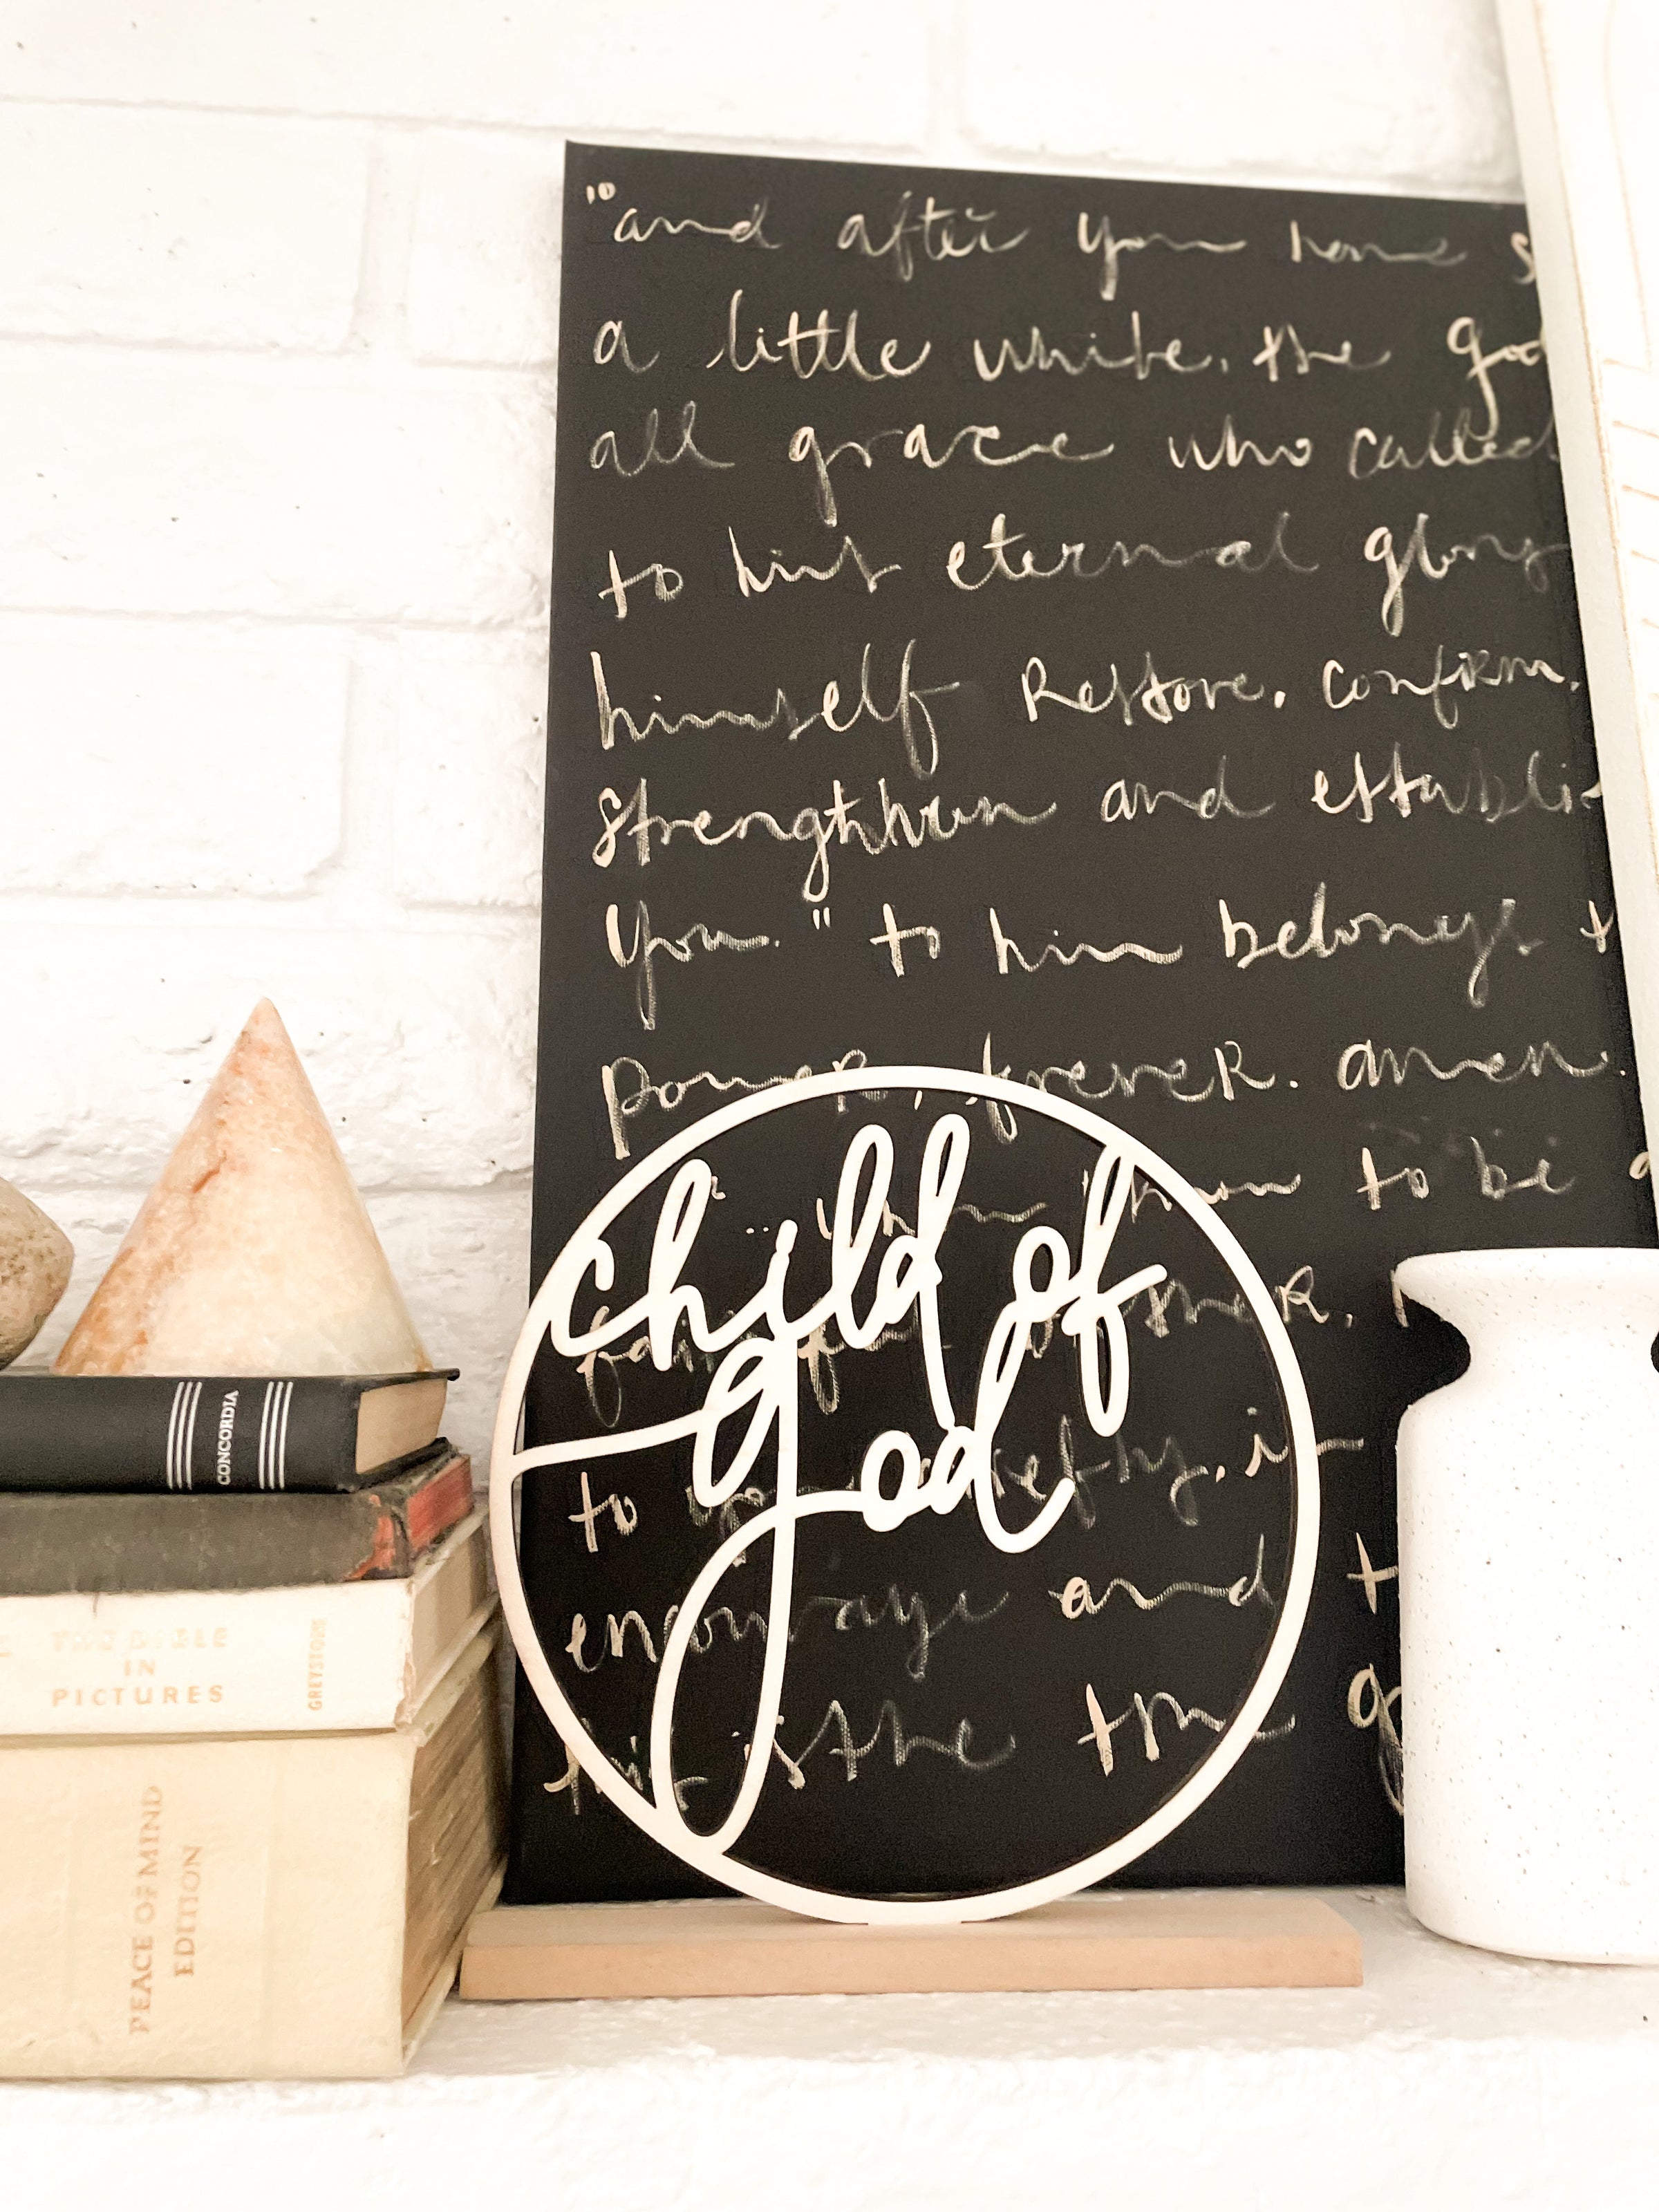 "and after you have
a little while, the god
all grace who called
to his eternal glory
himself Restore, confirm,
strengthen and establi
you." to him belongs t
poweR, foreveR. amen.
know to be a
to you briefly, in
encourage and t
this is the true g
child of
god
CONCORDIA
THE BIBLE
IN
PICTURES
GREYSTONE
PEACE OF MIND
EDITION